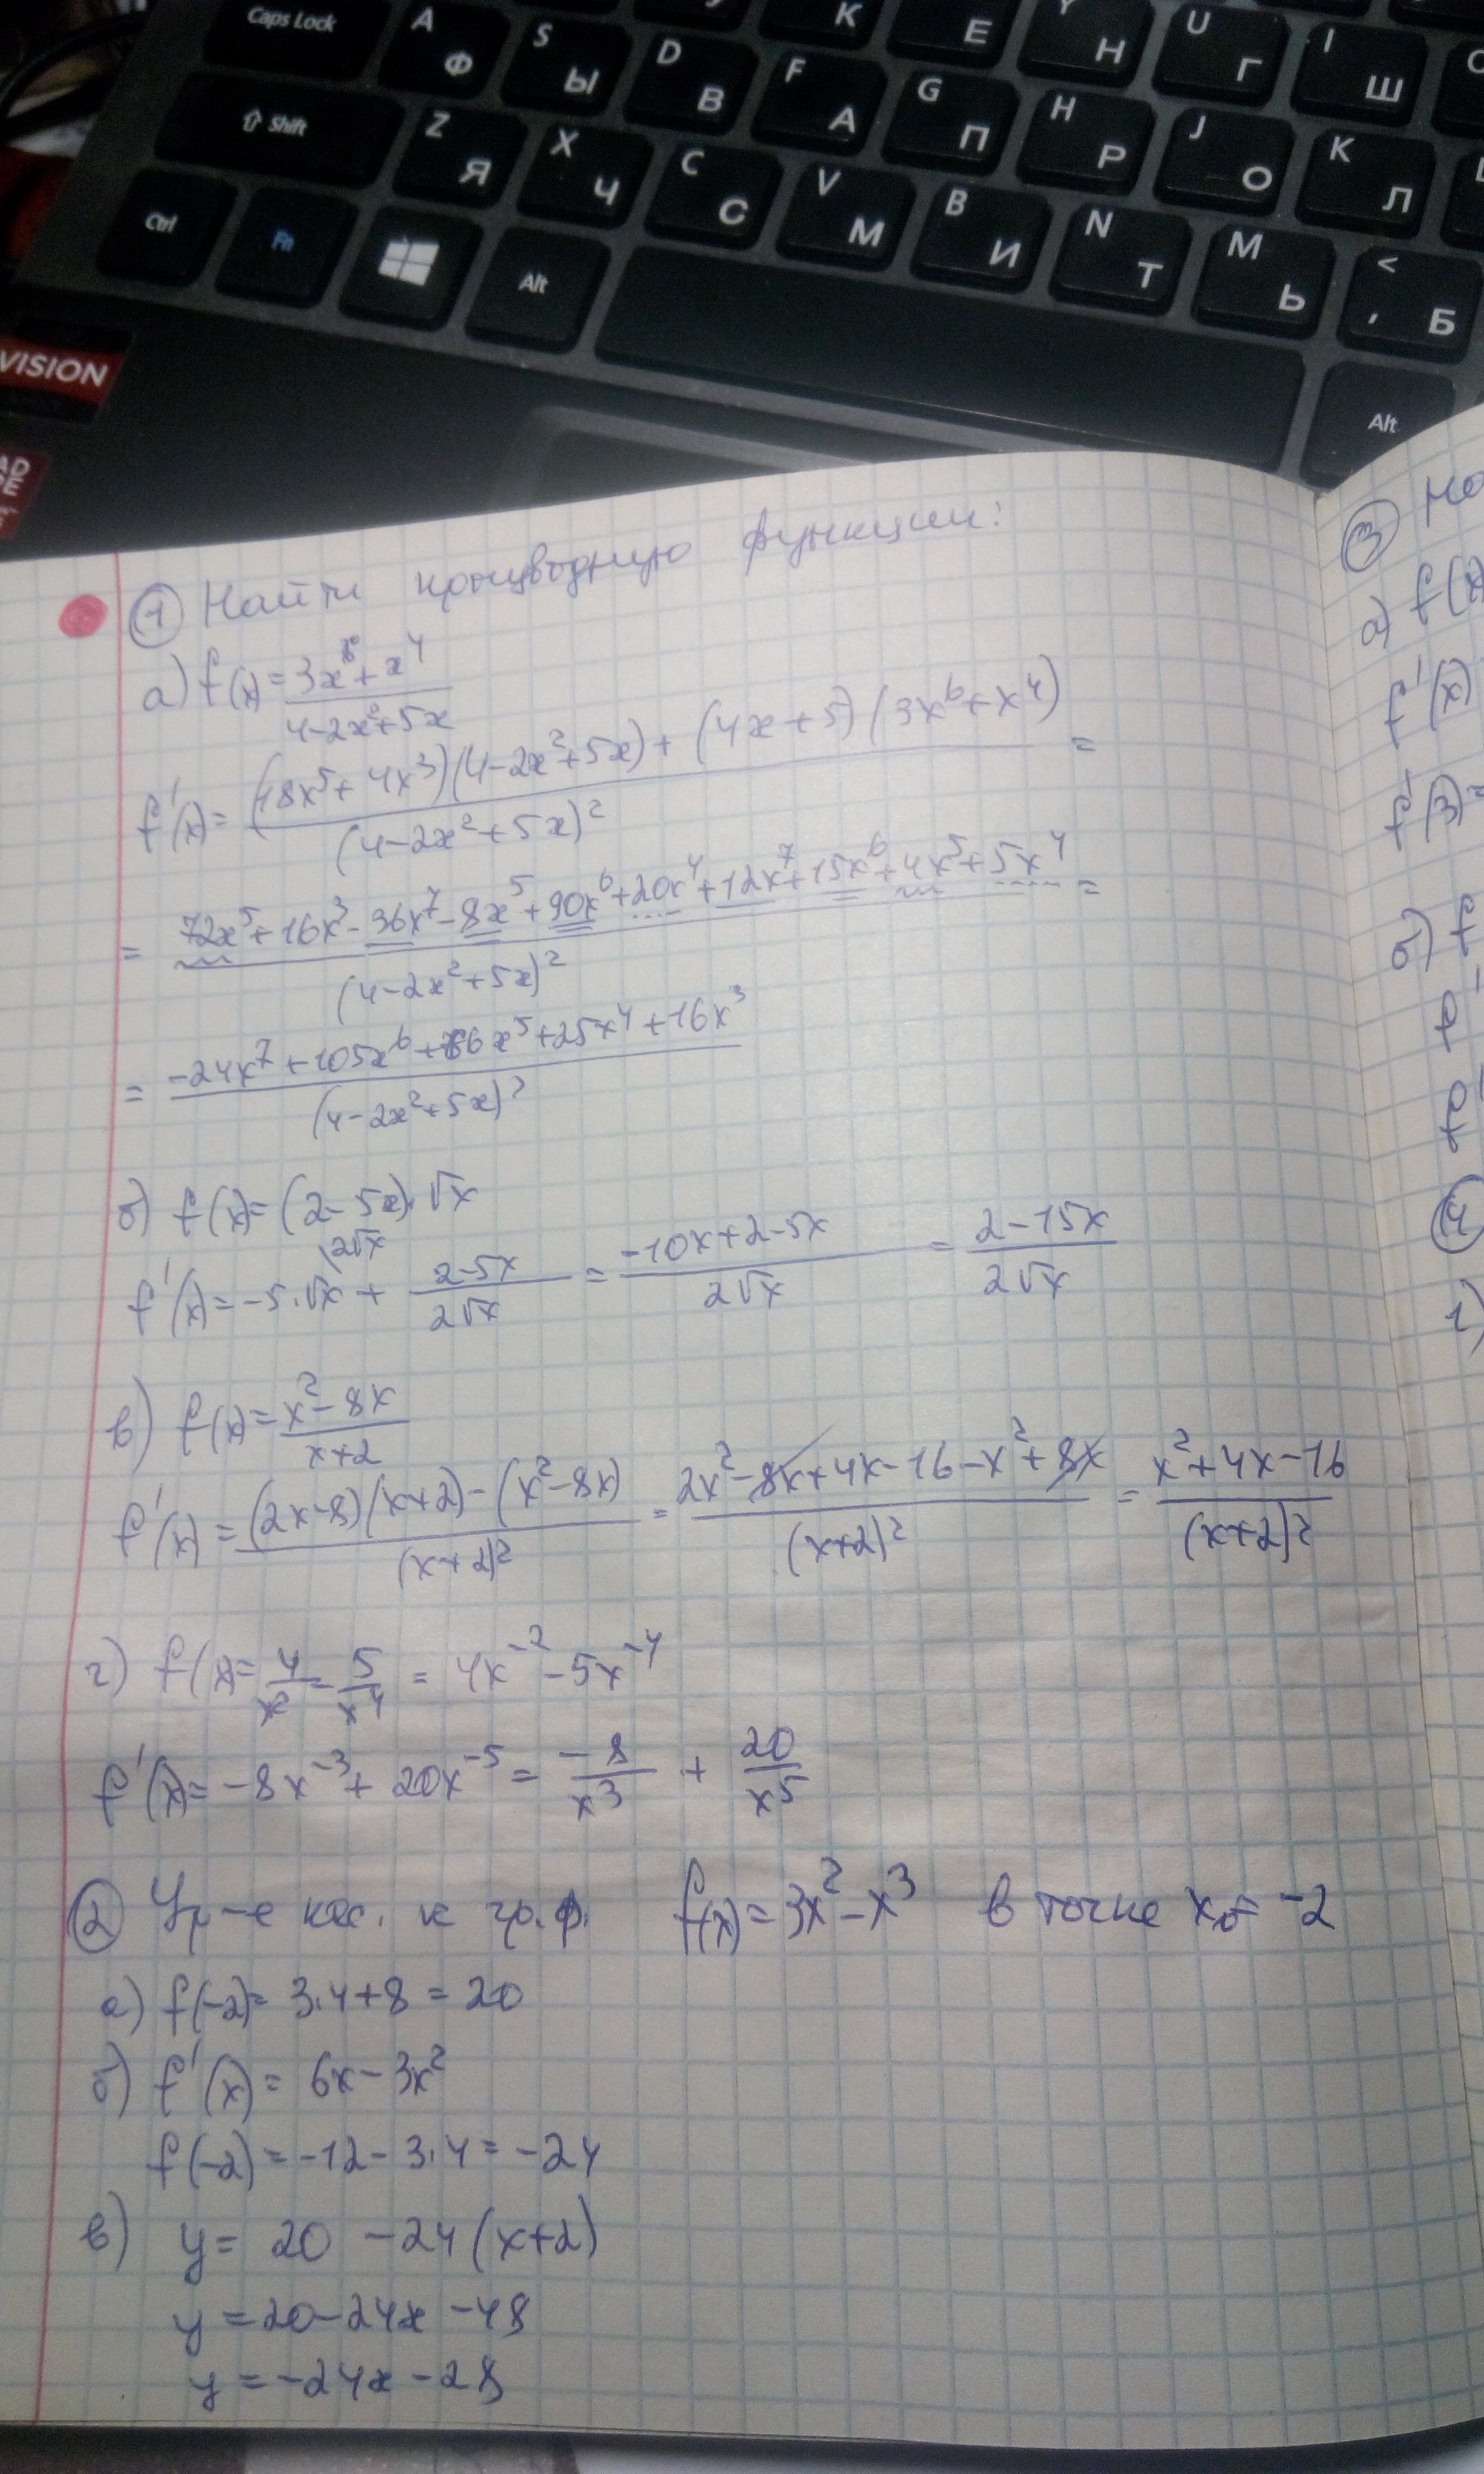 Caps Lock A Ф S Ы D В F А G П H Р J О K Л
К Е Y Н U Г I Ш
Shift Z Я X Ч C С V М B И N Т M Ь < , Б
Ctrl Fn Alt Alt
VISION
① Найти производную функции:
а) f(x) = (3x⁶+x⁴)/(4-2x²+5x)
f'(x) = ((18x⁵+4x³)(4-2x²+5x)+(4x+5)(3x⁶+x⁴))/(4-2x²+5x)² =
= (72x⁵+16x³-36x⁷-8x⁵+90x⁶+20x⁴+12x⁷+15x⁶+4x⁵+5x⁴)/(4-2x²+5x)² =
= (-24x⁷+105x⁶+66x⁵+25x⁴+16x³)/(4-2x²+5x)²
б) f(x) = (2-5x)·√x
f'(x) = -5·√x \2√x + (2-5x)/(2√x) = (-10x+2-5x)/(2√x) = (2-15x)/(2√x)
в) f(x) = (x²-8x)/(x+2)
f'(x) = ((2x-8)(x+2)-(x²-8x))/(x+2)² = (2x²-8x+4x-16-x²+8x)/(x+2)² = (x²+4x-16)/(x+2)²
г) f(x) = 4/x² - 5/x⁴ = 4x⁻²-5x⁻⁴
f'(x) = -8x⁻³+20x⁻⁵ = -8/x³ + 20/x⁵
② Ур-е кас. к гр.ф. f(x) = 3x²-x³ в точке x₀ = -2
а) f(-2) = 3·4+8 = 20
б) f'(x) = 6x-3x²
f(-2) = -12-3·4 = -24
в) y = 20 -24(x+2)
y = 20-24x-48
y = -24x-28
③
а) f(x)
f'(x)
f'(3) =
б) f
f'
f'
④
1)